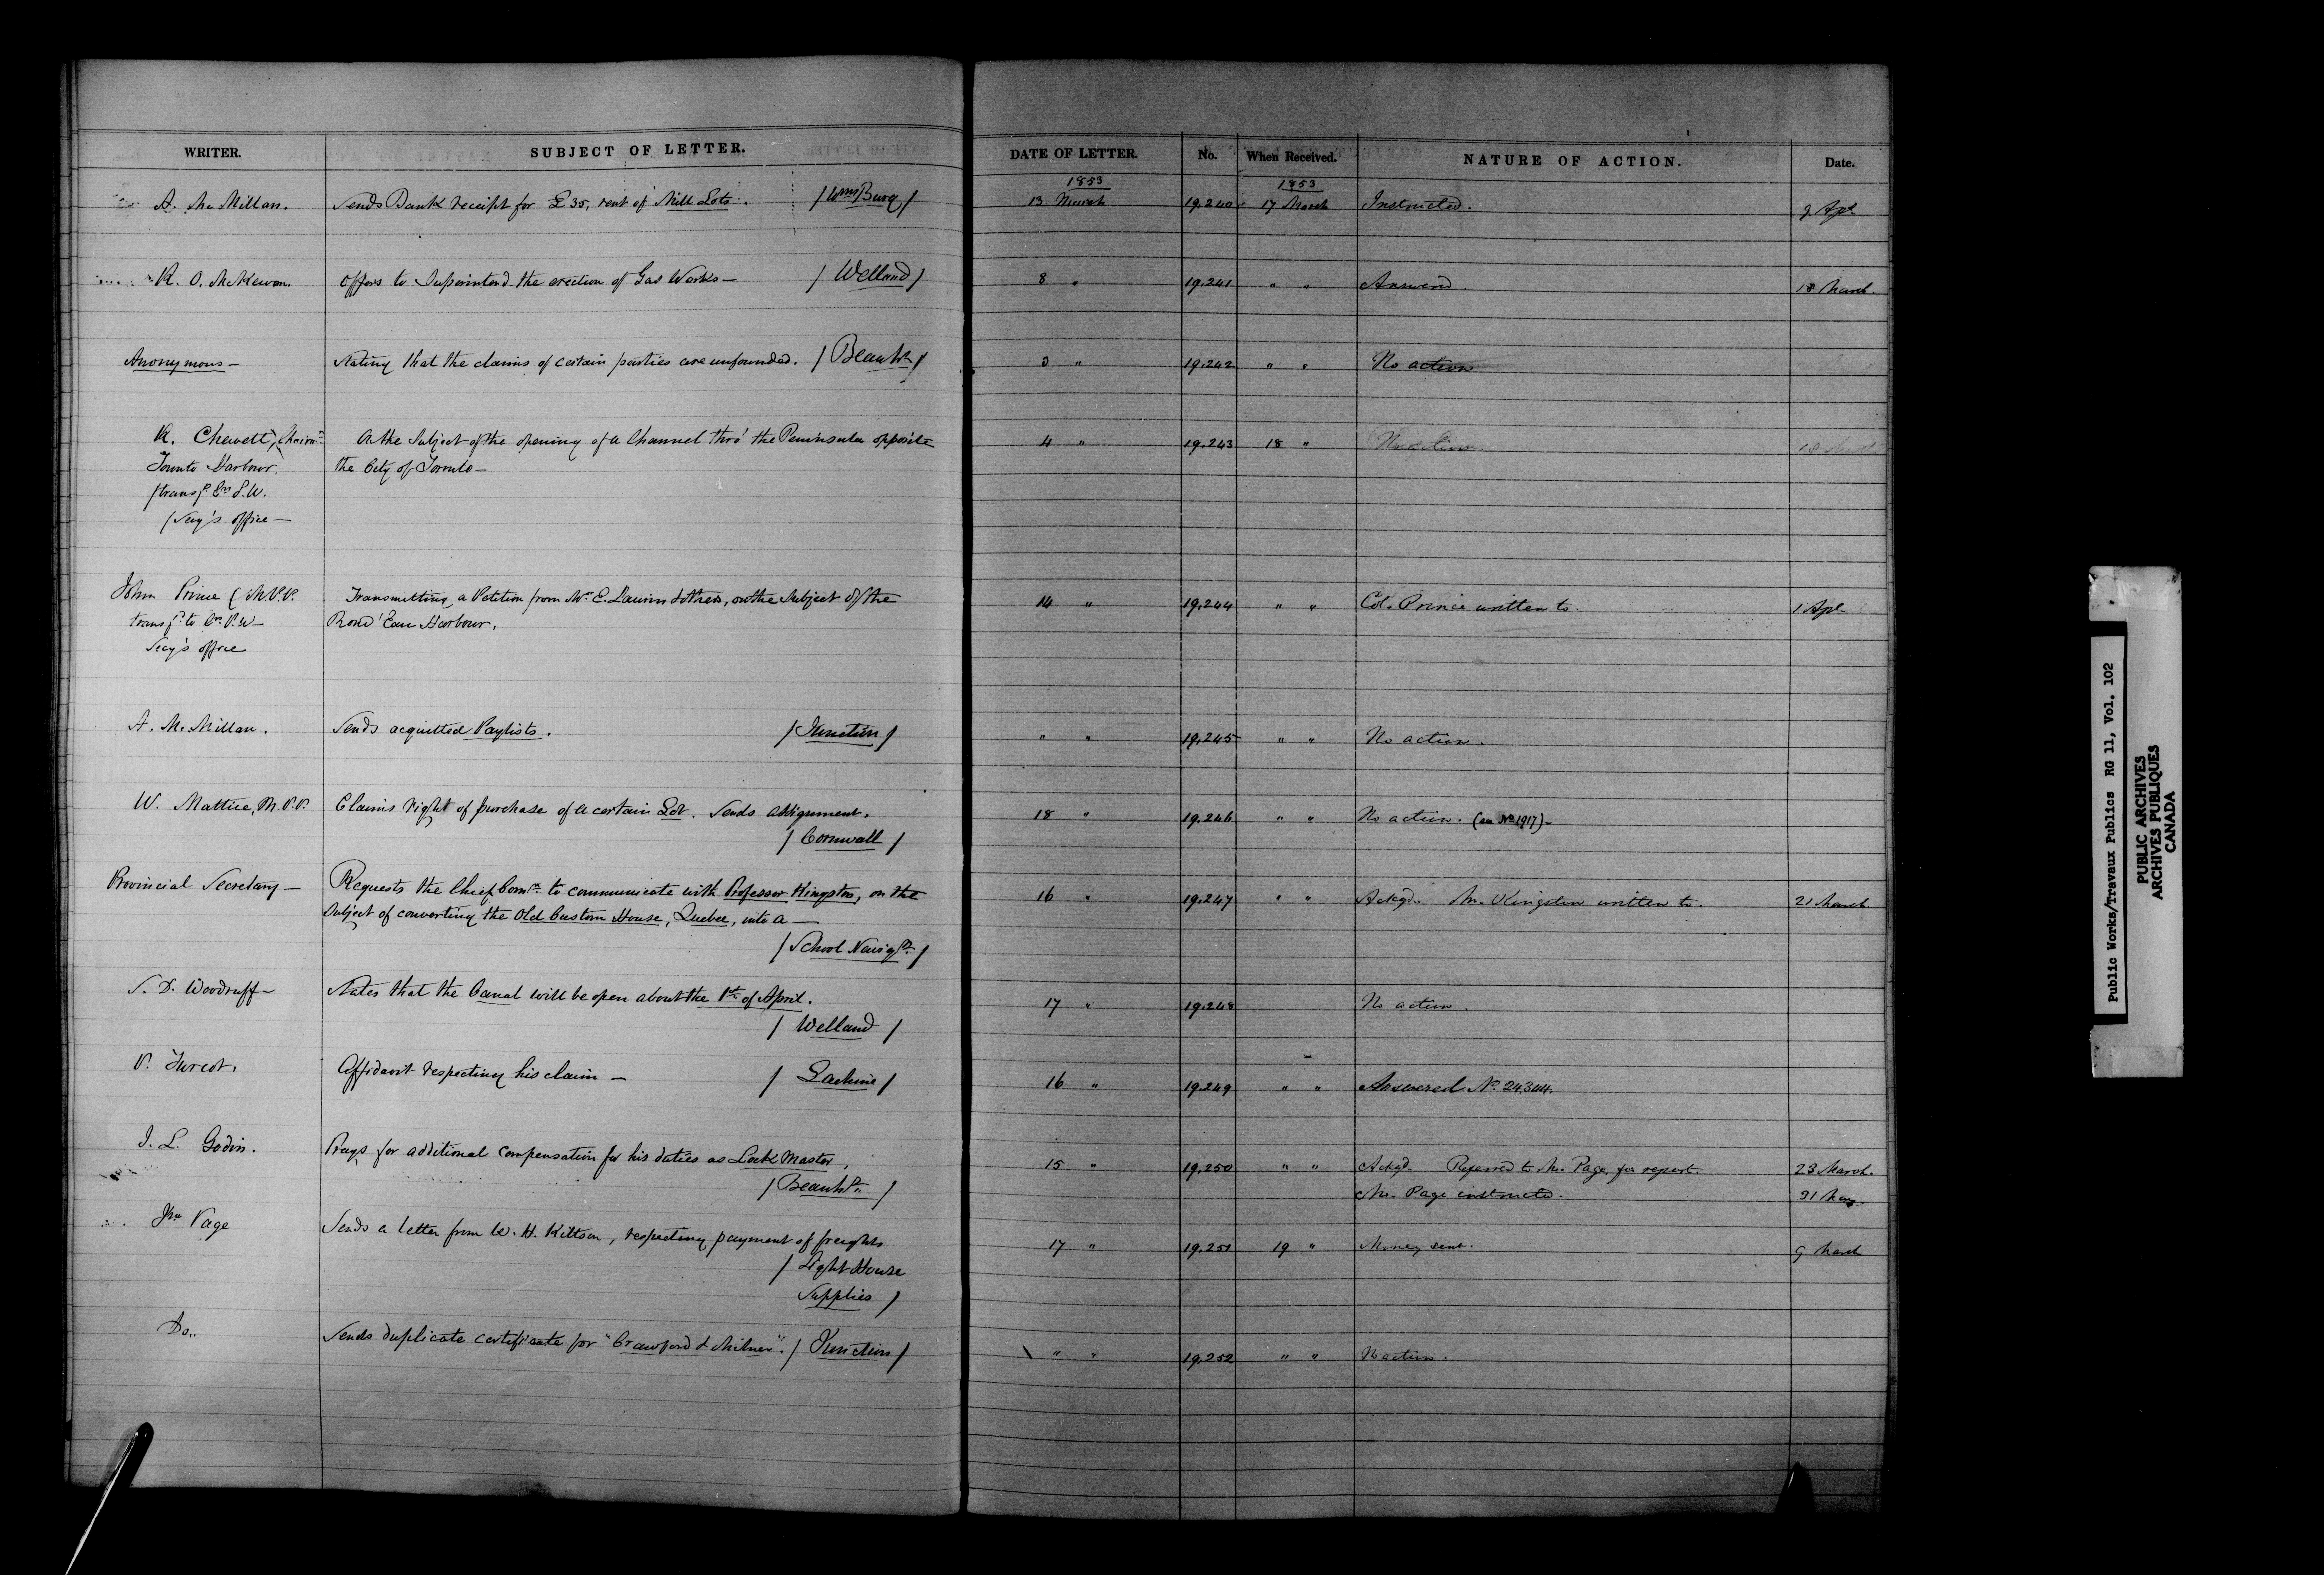 WRITER. SUBJECT OF LETTER. DATE OF LETTER. No. When Received. NATURE OF ACTION. Date.
1853 1853
A. McMillan. Sends Bank receipt for £35, rent of Mill Lots. /WmsBurg/ 13 March 19.240 17 March Instructed. 9 Apl
R. O. McKewan. Offers to Superintend the erection of Gas Works — /Welland/ 8 " 19.241 " " Answered. 18 March.
Anonymous — Stating that the claims of certain parties are unfounded. /Beauhs/ 3 " 19.242 " " No action
R. Chewett, Chairmn On the Subject of the opening of a Channel thro' the Peninsula opposite 4 " 19.243 18 " No action
Toronto Harbour. the City of Toronto —
Secy's office —
John Prince (M.P.P. Transmitting a Petition from Mr. E. & others, on the Subject of the 14 " 19.244 " " Col. Prince written to. 1 Apl
Rond'Eau Harbour.
Secy's office
A. McMillan. Sends acquitted Paylists. /Junction/ " " 19.245 " " No action.
W. Mattice, M.P.P. Claims right of purchase of a certain Lot. Sends assignment. 18 " 19.246 " " No action. (see No 1917) —
/Cornwall/
Provincial Secretary — Requests the Chief Comr. to communicate with Professor Kingston, on the 16 " 19.247 " " Ackgd. Mr. Kingston written to. 21 March.
Subject of converting the Old Custom House, Quebec, into a —
/School Navign./
S. D. Woodruff — States that the Canal will be open about the 1st of April. 17 " 19.248 No action.
/Welland/
P. Turcot. Affidavit respecting his claim — /Lachine/ 16 " 19.249 " " Answered No. 24.344.
J. L. Godin. Prays for additional compensation for his duties as Lock Master, 15 " 19.250 " " Ackgd. Referred to Mr. Page for report. 23 March.
/Beauhs./ Mr. Page instructed. 31 May.
Jno Page Sends a letter from W. H. Kittson, respecting payment of freights 17 " 19.251 19 " Money sent. 9 March
/Light House
Supplies/
Do.. Sends duplicate certificate for "Crawford & Milner". /Junction/ " " 19.252 " " No action.
Public Works/Travaux Publics RG 11, Vol. 102
PUBLIC ARCHIVES
ARCHIVES PUBLIQUES
CANADA